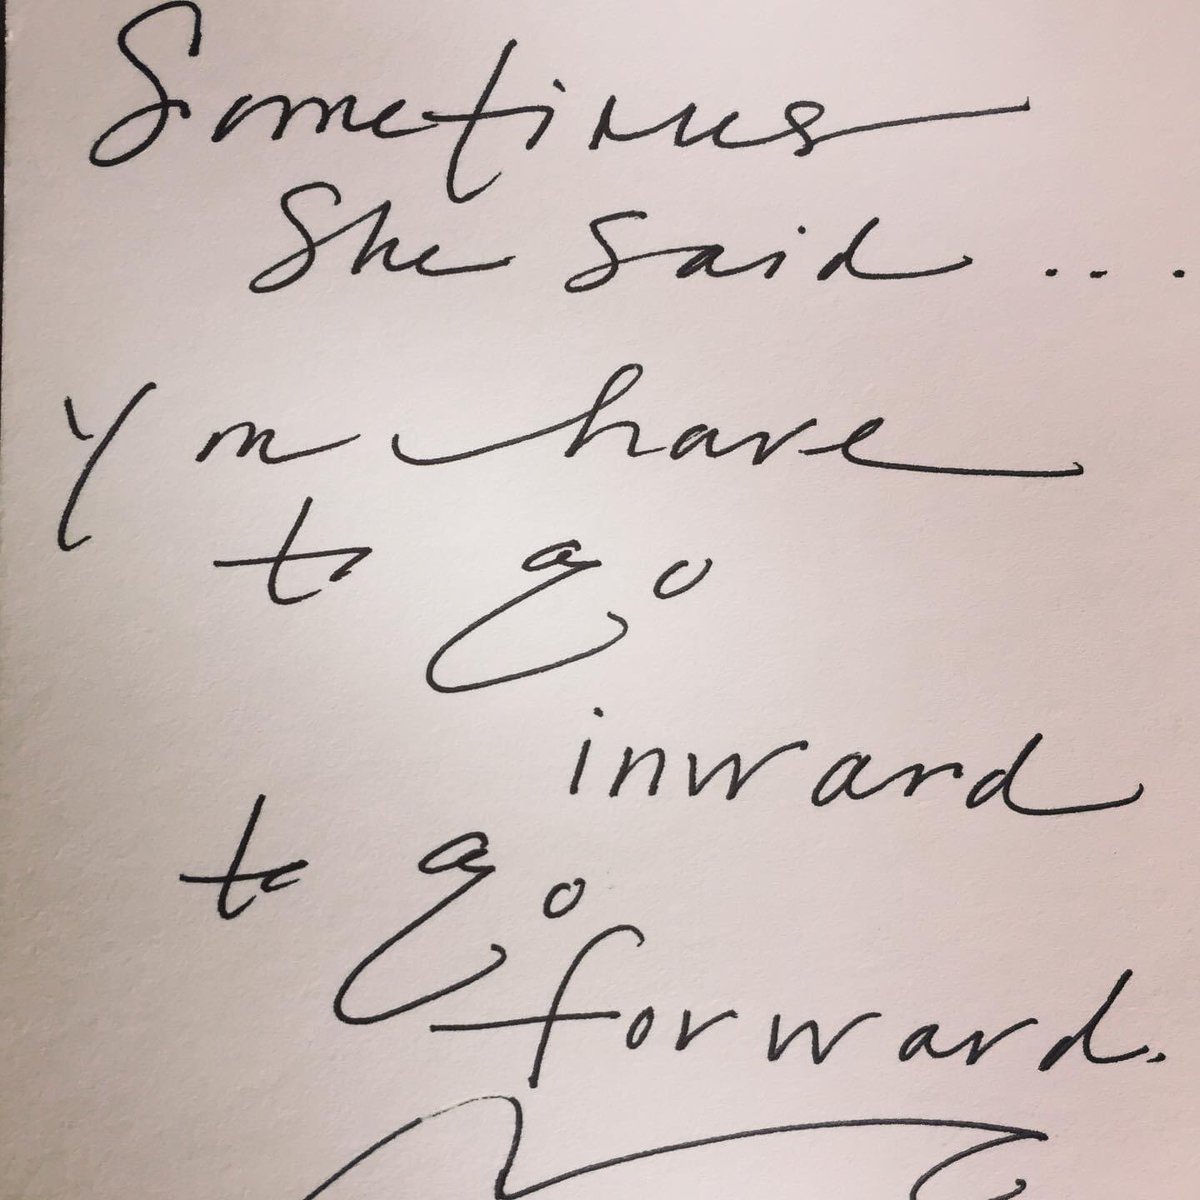 Sometimes
She said...
You have
to go
inward
to go
forward.